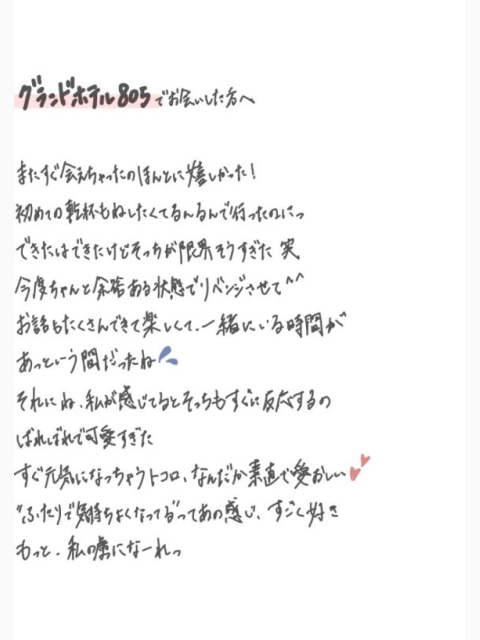 グランドホテル805でお会いした方へ
またすぐ会えちゃったのほんとに嬉しかった!
初めての乾杯もねしたくてるんるんで行ったのにっ
できたはできたけどそっちが限界そうすぎた 笑
今度ちゃんと余裕ある状態でリベンジさせて^^
お話もたくさんできて楽しくて、一緒にいる時間が
あっという間だったね
それにね、私が感じてるとそっちもすぐに反応するの
ばればれで可愛すぎた
すぐ元気になっちゃうトコロ、なんだか素直で愛おしい
"ふたりで気持ちよくなってる"ってあの感じ、すごく好き
もっと、私の虜になーれっ